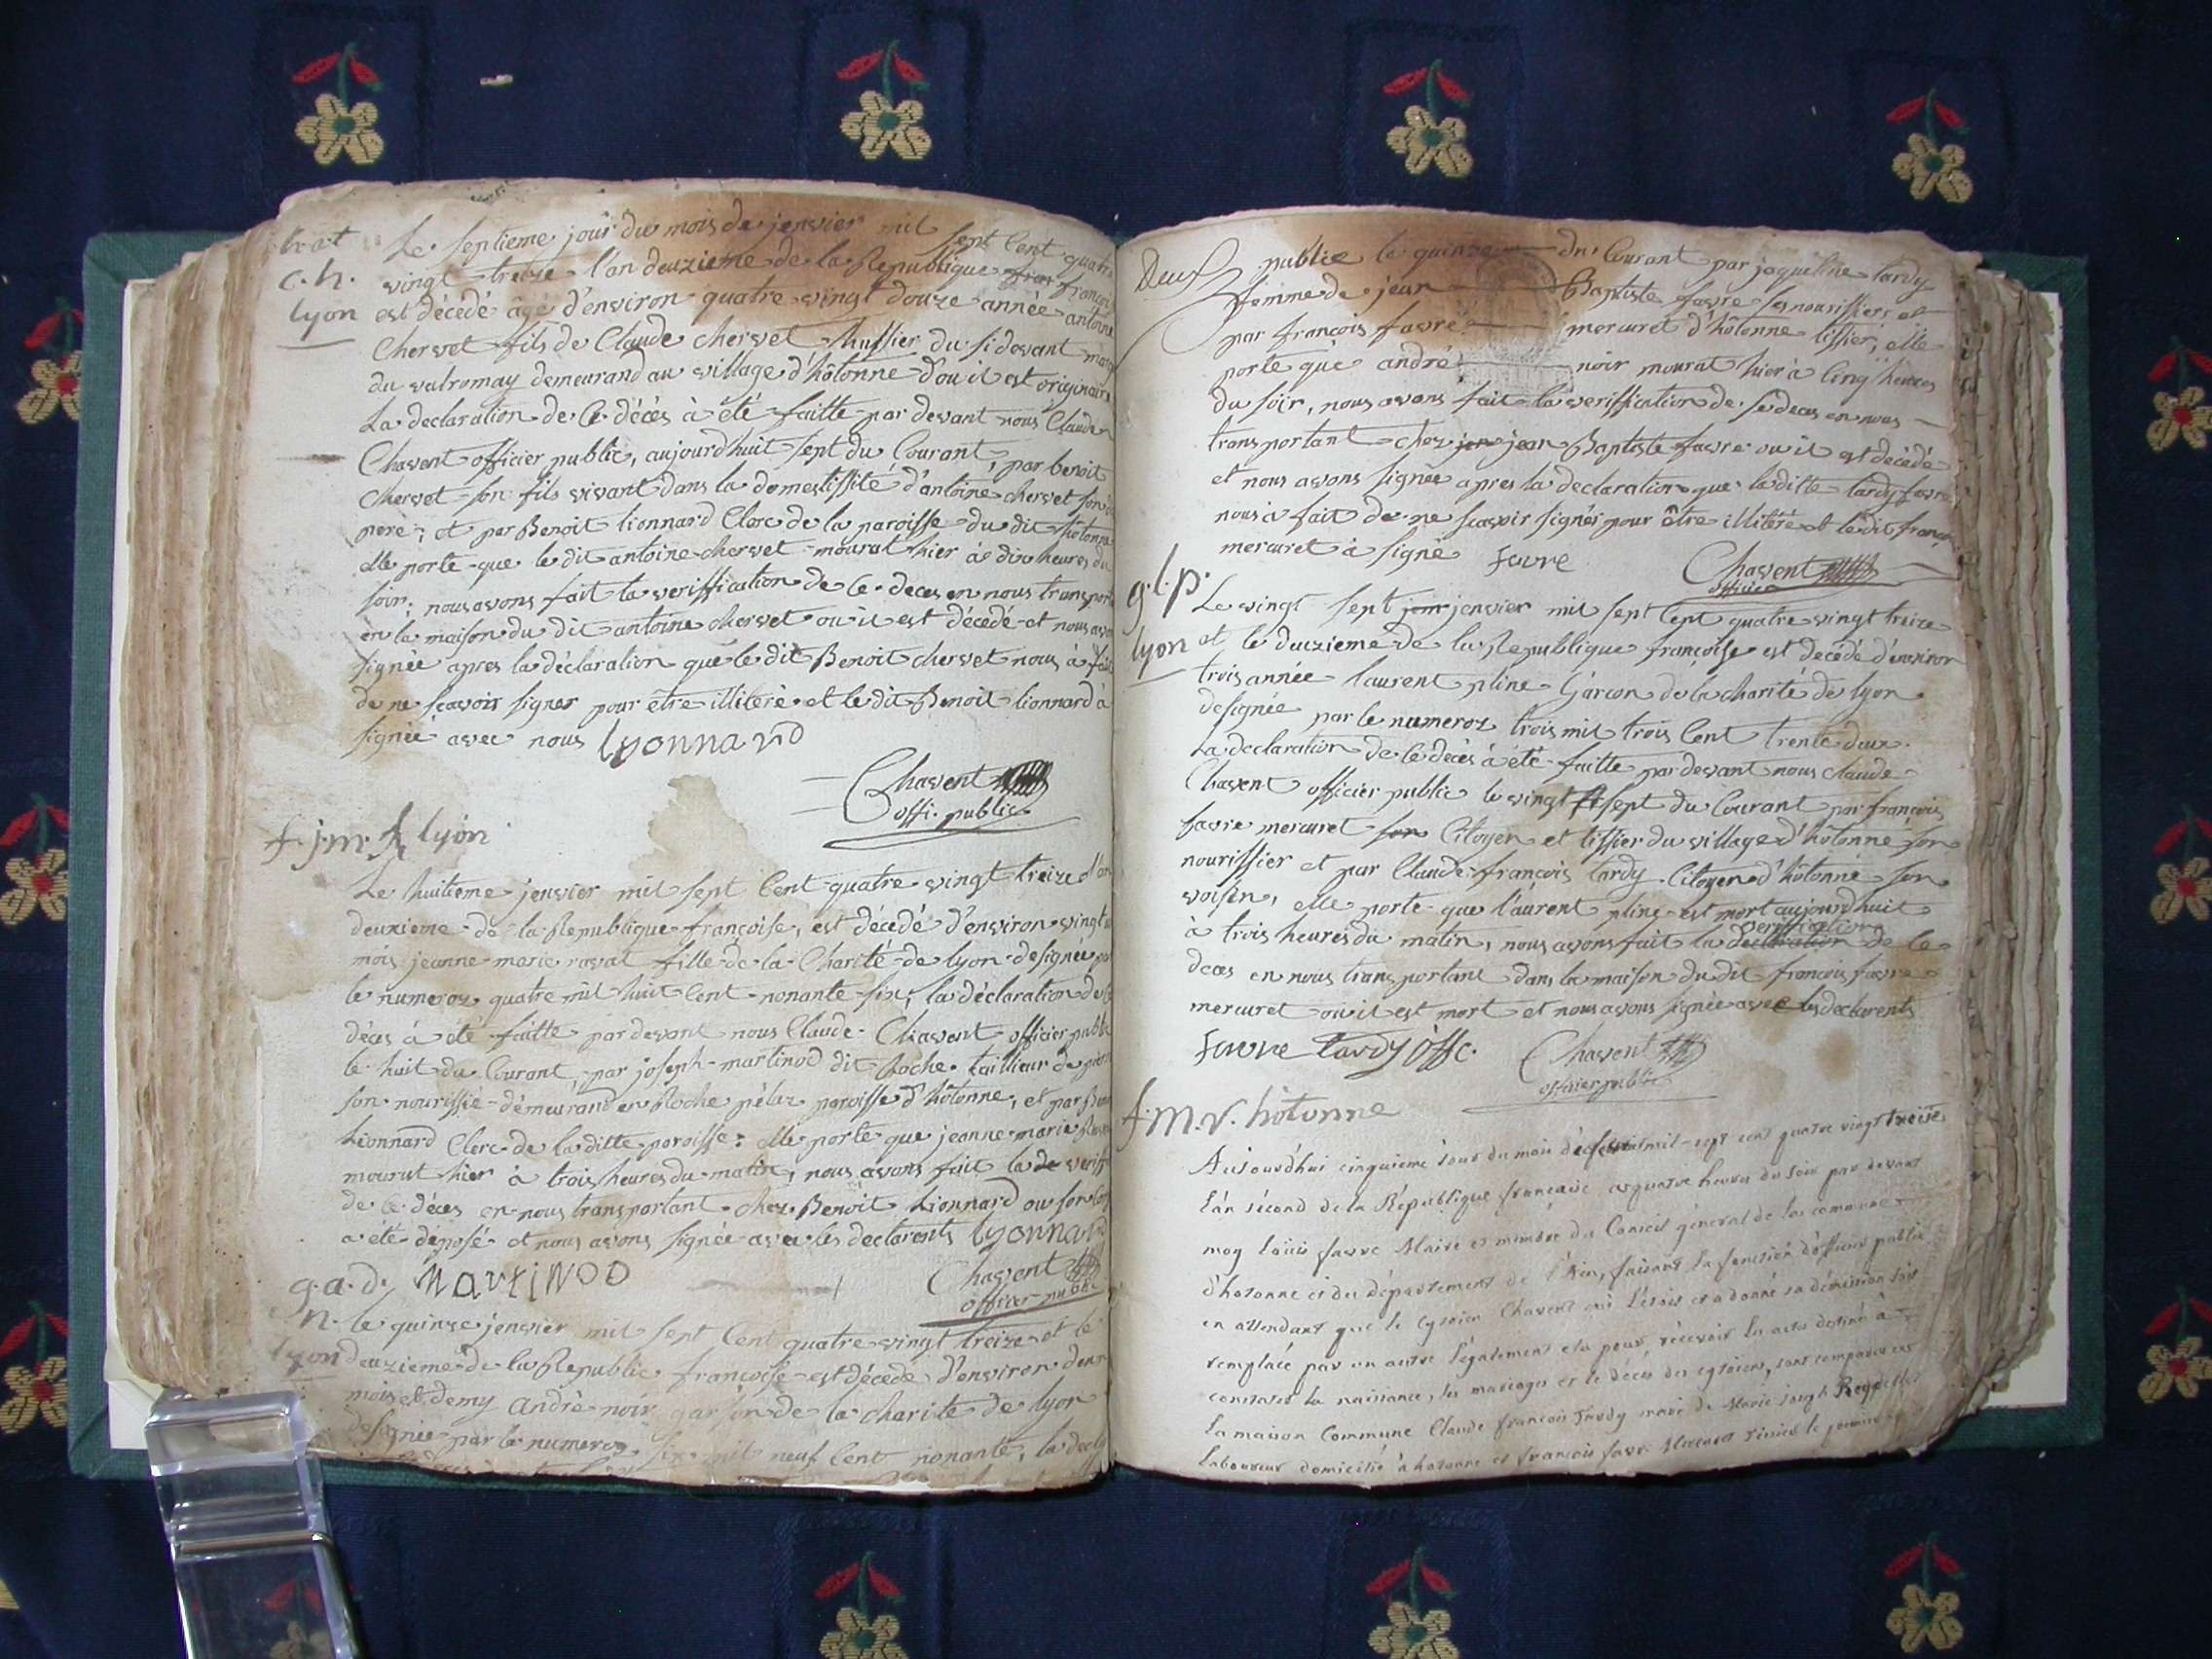 Le septieme jour du mois de jenvier mil sept Cent quatre
c. h. vingt treize l'an deuzieme de la Republique françoi
lyon est décédé âgé d'environ quatre vingt douze année antoine
Chervet fils de Claude chervet huissier du sidevant
du valromay demeurand au village d'hôtonne d'ou il est originaire
La declaration de ce décés à été faitte par devant nous Claude
Chavent officier public, aujourd'huit sept du Courant, par benoit
Chervet son fils vivant dans la domestissité d'antoine chervet son
pere, et par Benoit lionnard Clerc de la paroisse du dit hôtonne
elle porte que le dit antoine chervet mourut hier à dix heures du
soir, nous avons fait la veriffication de ce deces en nous transporta
en la maison du dit antoine chervet ou il est décédé et nous avo
signée apres la déclaration que le dit Benoit chervet nous à fait
de ne scavoir signer pour être illiteré et le dit Benoit lionnard à
signée avec nous lyonnard
Chavent
offi. public
f. j. m. lyon
Le huitieme jenvier mil sept Cent quatre vingt treize l'an
deuxieme de la Republique françoise, est décédé d'environ vingt
mois jeanne marie raval fille de la Charité de lyon designée par
le numeroz quatre mil huit Cent nonante six; la déclaration de ce
déces à été faitte pardevant nous Claude Chavent officier public
le huit du Courant, par joseph martinod dit Roche tailleur de
son nourissié démeurand en Roche paroisse d'hôtonne, et par
Lionnard Clerc de la ditte paroisse: elle porte que jeanne marie
mourut hier à trois heures du matin; nous avons fait la de veriff
de ce déces en nous transportant chez Benoit Lionnard ou son Cor
a été déposé et nous avons signée avec les declarents lyonnard
g. a. d. MartiNOD Chavent
officier public
n. le quinze jenvier mil sept Cent quatre vingt treize et le
lyon deuzieme de la Republic françoise est décédé d'environ deux
mois et demy andré noir garson de la charité de lyon
designée par le numeroz six mil neuf Cent nonante; la decla
Deux public le quinze du Courant par jaqueline tardy
femme de jean Baptiste favre ses nourissiers et
par françois favre mercuret d'hôtonne tissier, elle
porte que andré noir mourut hier à Cinq heures
du soir, nous avons fait la veriffication de se deces en nous
transportant chez jen jean Baptiste favre ou il est decédé
et nous avons signée apres la declaration que la ditte tardy favre
nous à fait de ne scavoir signér pour être illitéré et le dit franço
mercuret à signé favre Chavent
officier
g. l. p. Le vingt sept jenvier mil sept Cept quatre vingt treize
lyon et le deuzieme de la Republique françoise est decédé d'environ
trois année laurent pline Garcon de la charité de lyon
designée par le numeroz trois mil trois Cent trente deux.
La declaration de ce décés à été faitte par devant nous claude
Chavent officier public le vingt sept du Courant par françois
favre mercuret son Citoyen et tissier du village d'hôtonne son
nourissier et par Claude françois tardy Citoyen d'hôtonne son
voisin, elle porte que l'aurent pline est mort aujourd'huit
à trois heures du matin, nous avons fait la declaration veriffication de ce
deces en nous transportant dans la maison du dit françois favre
mercuret ou il est mort et nous avons signée avec les declarents
favre tardy offc. Chavent
officier public
f. M. V. hôtonne
Aujourd'hui cinquieme jour du mois de mil sept cent quatre vingt treize
L'an sécond de la République francaise, à quatre heures du soir par devant
moy Louis favre Maire et membre du Conseil général de la commune
d'hotonne et du département de l'Ain, faisant la fonction d'officier public
en attendant que le Cytoien Chavent qui l'étoit et a donné sa démission soit
remplacé par un autre légalement élu pour récevoir les actes destiné à
constater la naissance, les mariages et le décès des cytoiens, sont comparu en
la maison Commune Claude françois Tardy mari de Marie joseph
laboureur domicilié à hotonne et françois favre Mercuret tissier le premier